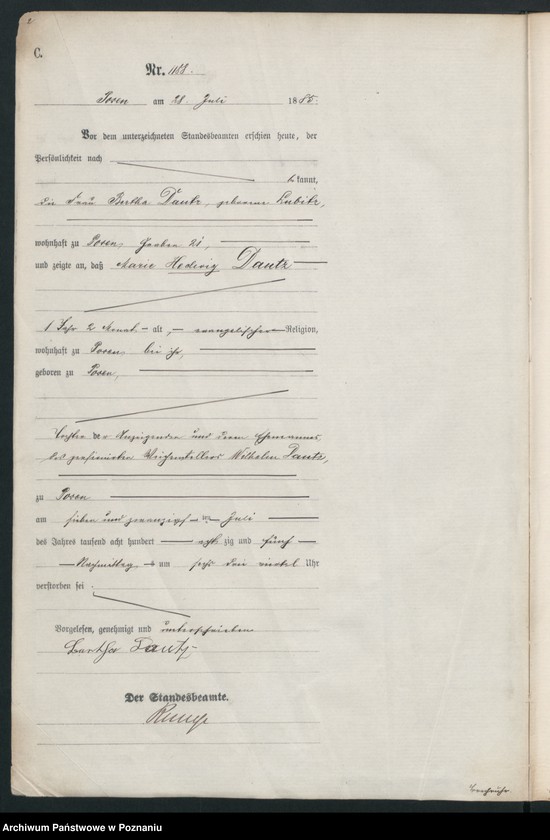 C.
Nr. 1108.
Posen am 28. Juli 1885.
Vor dem unterzeichneten Standesbeamten erschien heute, der
Persönlichkeit nach
kannt,
die Frau Bertha Dautz, geborene Lubitz,
wohnhaft zu Posen, Graben 21,
und zeigte an, daß Marie Hedwig Dautz
1 Jahr 2 Monat alt, evangelischer Religion,
wohnhaft zu Posen, bei ihr,
geboren zu Posen,
Tochter der Anzeigenden und deren Ehemannes,
des pensionirten Weichenstellers Wilhelm Dautz,
zu Posen
am sieben und zwanzigsten Juli
des Jahres tausend acht hundert achtzig und fünf
Nachmittags um sechs drei viertel Uhr
verstorben sei.
Vorgelesen, genehmigt und unterschrieben
Bertha Dautz
Der Standesbeamte.
Archiwum Państwowe w Poznaniu